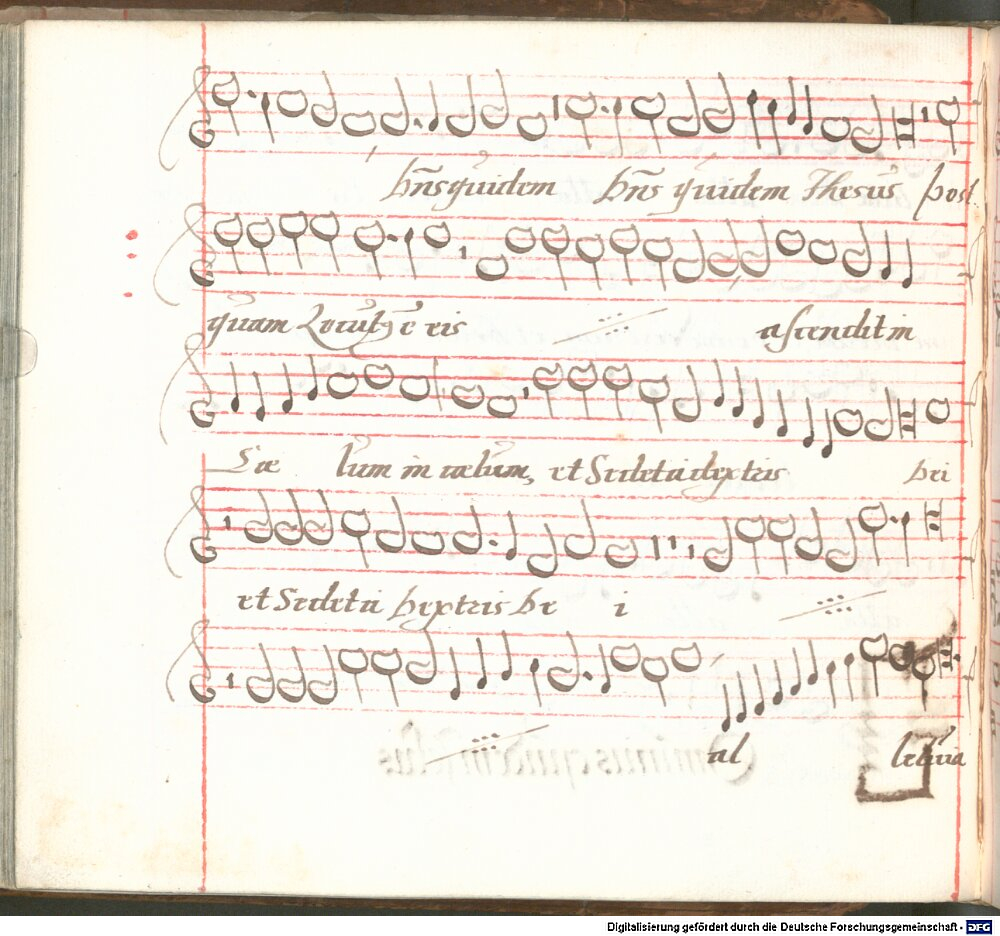 Dn̄s quidem Dn̄s quidem Jhesus post
quam Locut⁹ ē eis ascendit in
Cæ lum in cælum, et Sedet a dextris Dei
et Sedet a Dextris De i
al leluia
Digitalisierung gefördert durch die Deutsche Forschungsgemeinschaft - DFG